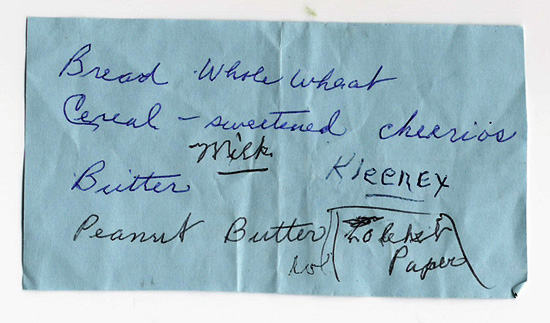 Bread Whole Wheat
Cereal - sweetened cheerios
Milk
Butter
Kleenex
Peanut Butter
Paper